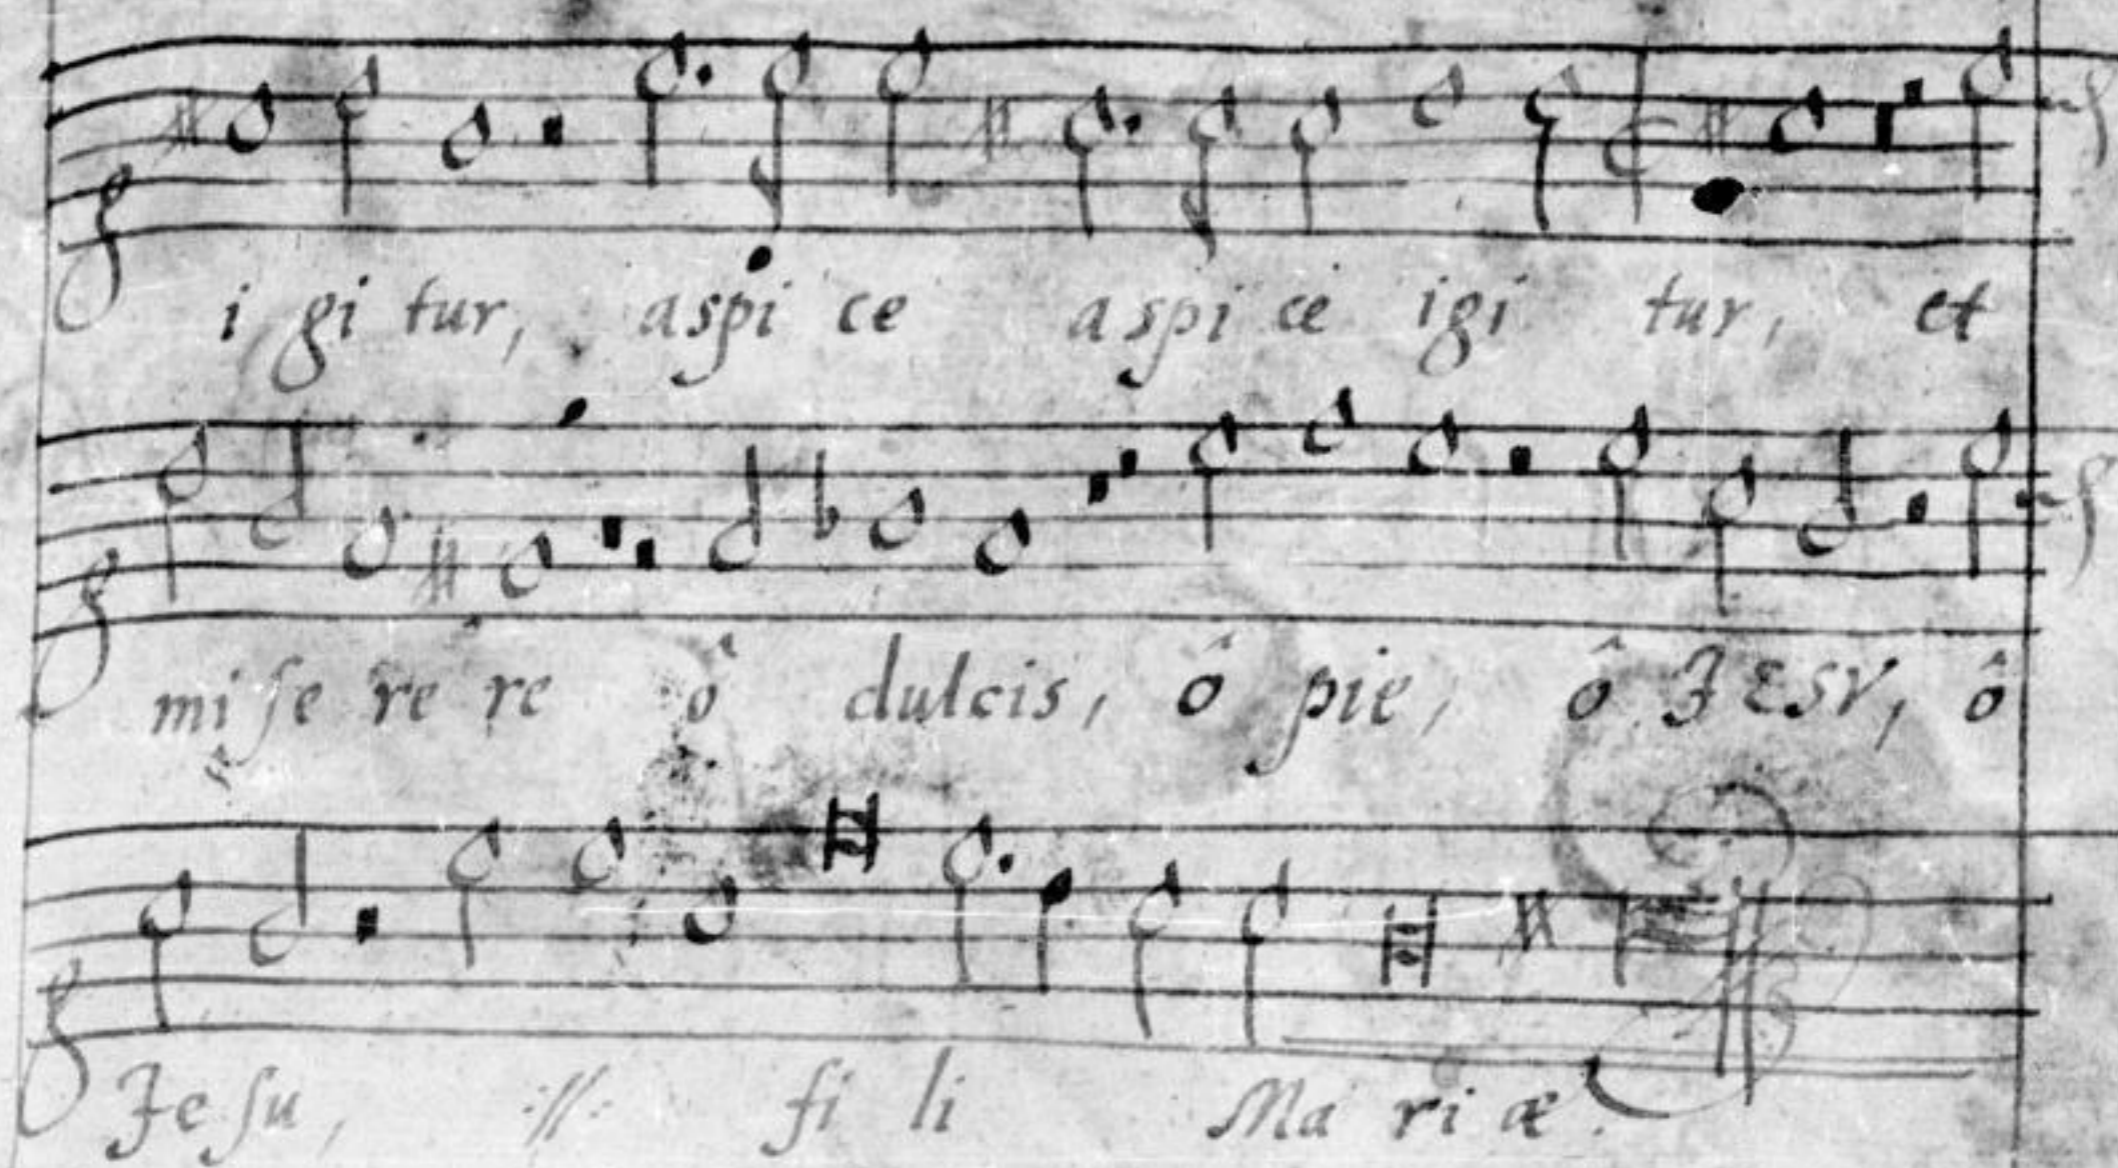 i gi tur, aspi ce aspi ce igi tur, et
mi ſe re re ô dulcis, ô pie, ô JESV, ô
Je ſu, ://: fi li Ma ri æ.